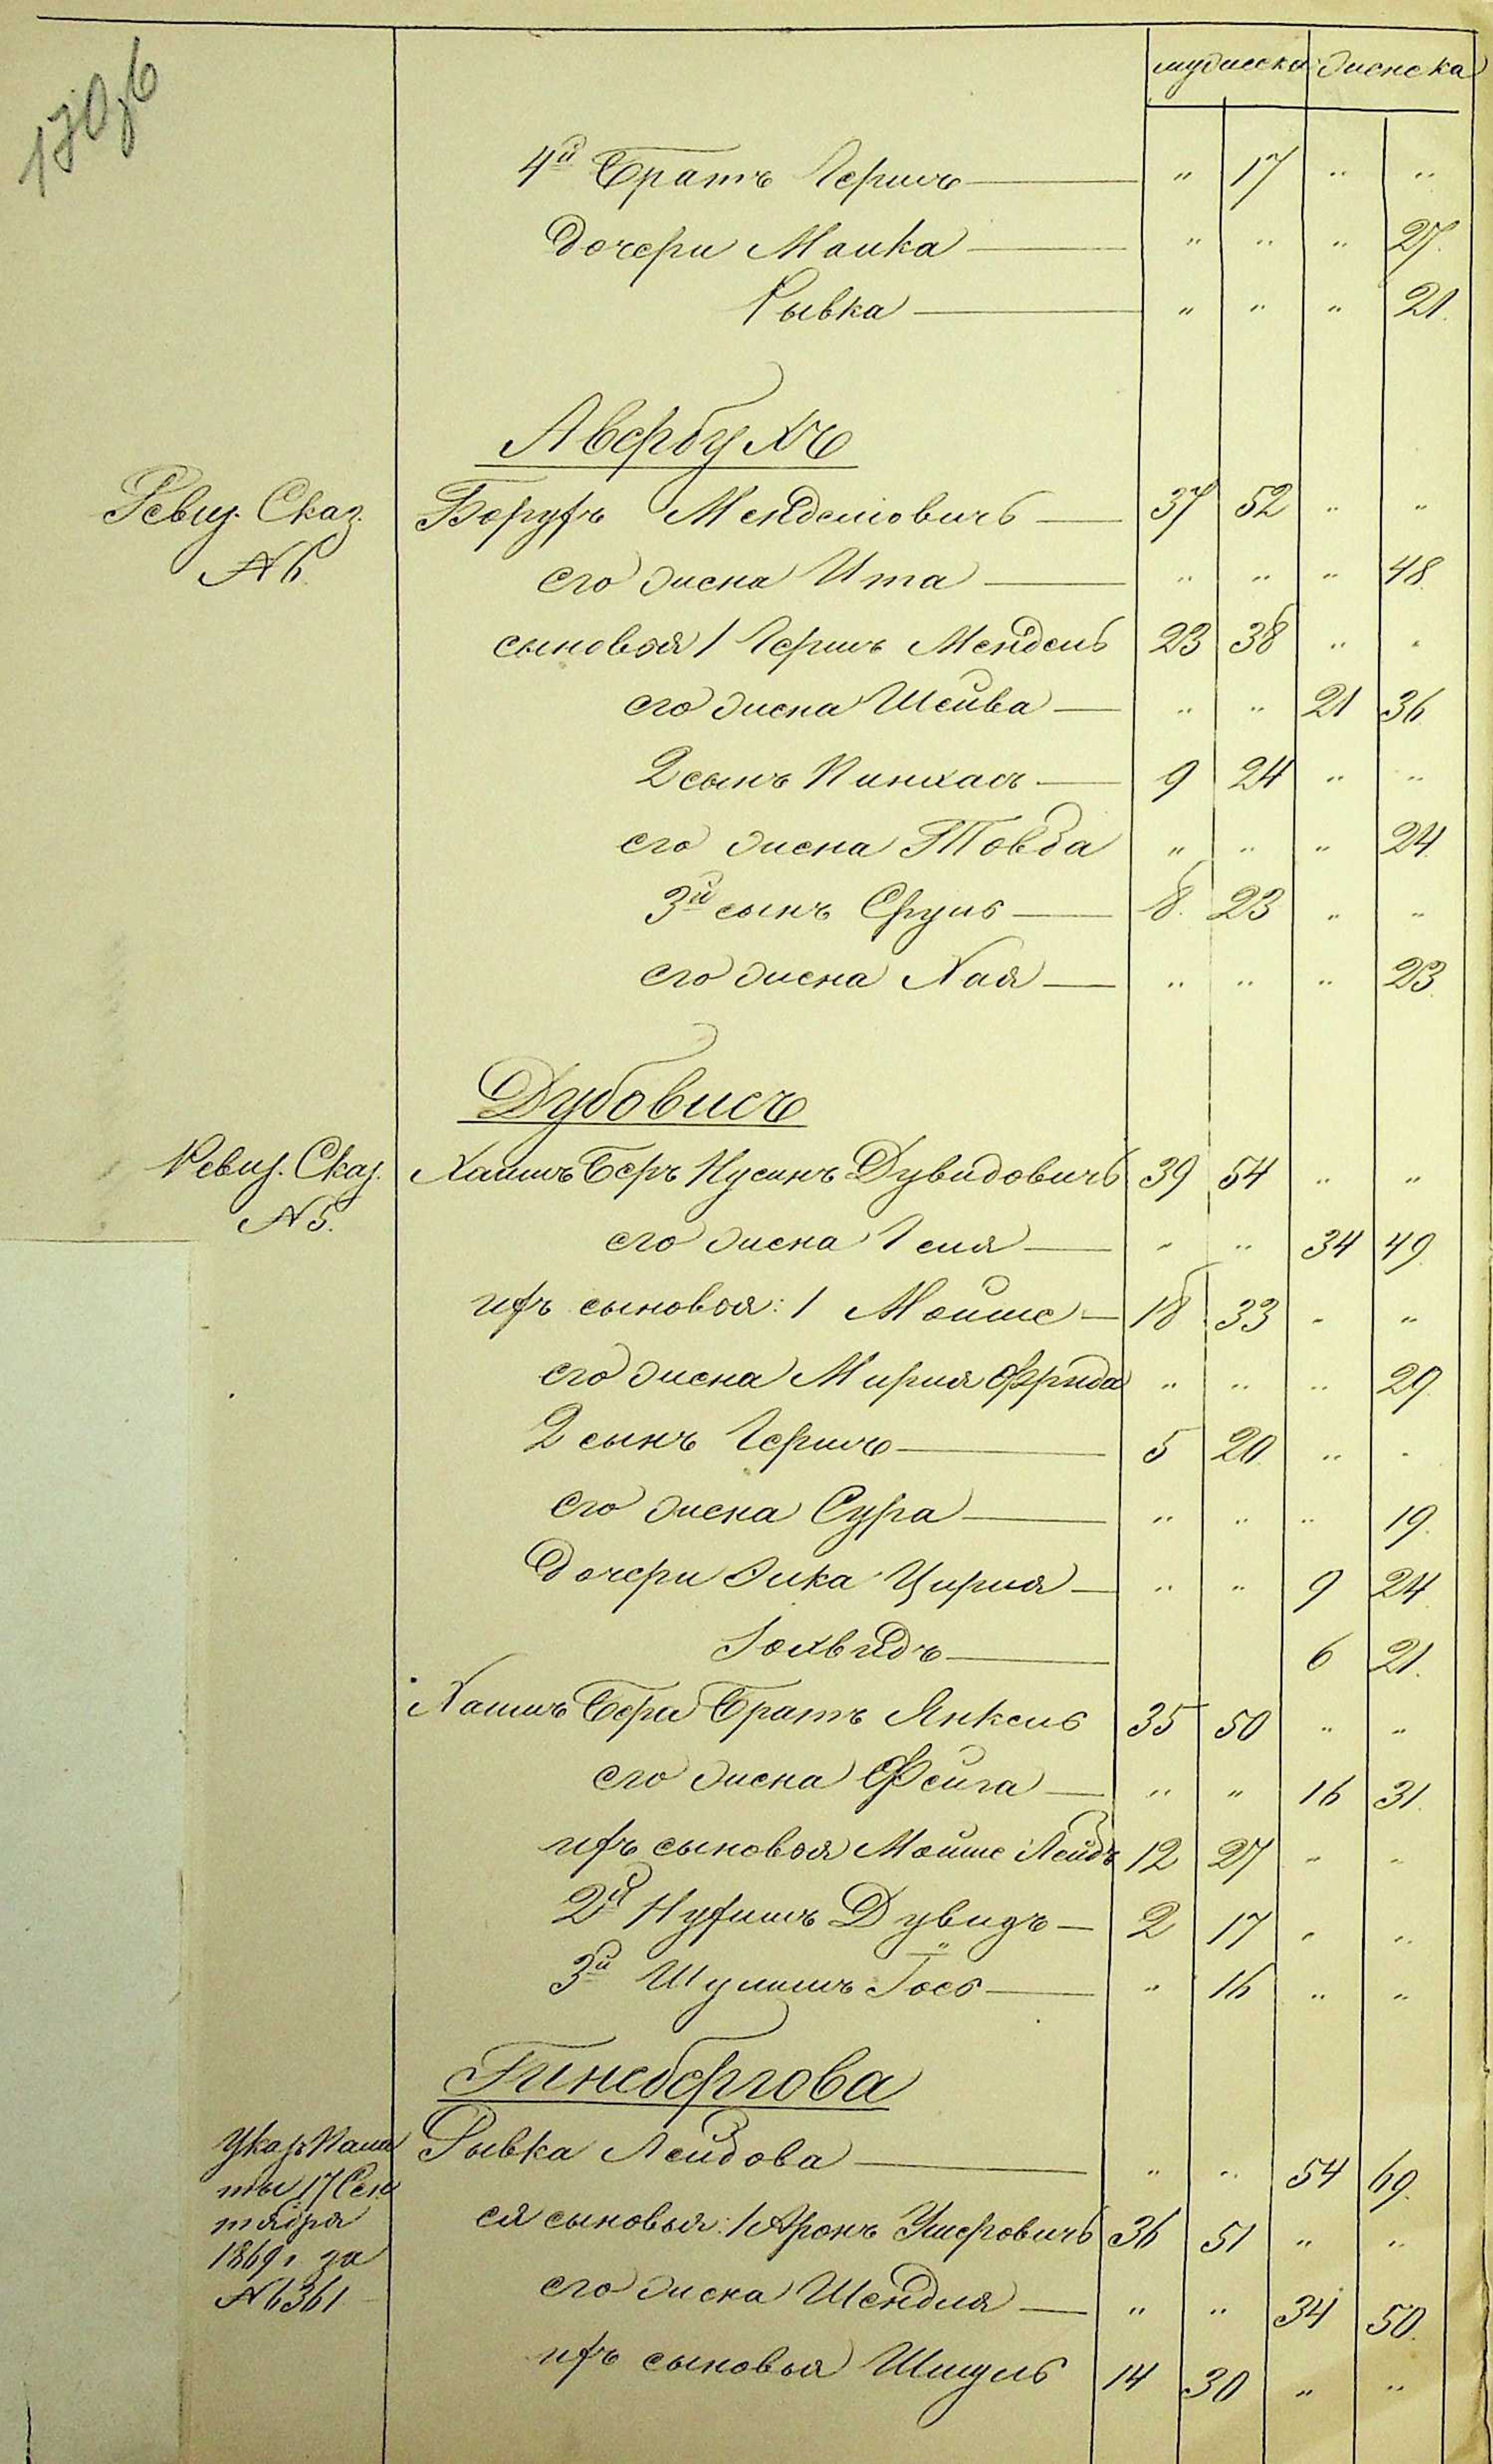 170,6
мужеска женска
4й Братъ Гершъ — " 17 " "
дочери Малка — " " " 27.
Рывка — " " " 21.
Авербухъ
Ревиз. Сказ. Борухъ Менделіовичъ — 37 52 " "
№ 6. его жена Ита — " " " 48.
сыновья 1 Гершъ Мендель 23 38 " "
его жена Шейва — " " 21 36
2 сынъ Пинхасъ — 9 24 " "
его жена Товба " " " 24.
3й сынъ Сруль — 8. 23 " "
его жена Хая — " " " 23.
Дубовисъ
Ревиз. Сказ. Хаимъ Беръ Нусинъ Дувидовичъ 39 54 " "
№ 5. его жена Геня — " " 34 49.
ихъ сыновья: 1 Мойше — 18 33 " "
его жена Мирля Фрида " " " 29.
2 сынъ Гершъ — 5 20. " "
его жена Сура — " " " 19.
дочери Элка Цирля — " " 9 24.
— 6 21.
Хаимъ Бера Братъ Янкель 35 50 " "
его жена Фейга — " " 16 31.
ихъ сыновья Мойше Лейбъ 12 27 " "
2й Нухимъ Дувидъ — 2 17 " "
3й Шулимъ Іось — " 16 " "
Гинсбергова
Указъ Пала Рывка Лейбова — " " 54 69.
ты 17 Сен
тября ея сыновья: 1 Аронъ Ушеровичъ 36 51 " "
1869 г. за
№ 6361 его жена Шендля — " " 34 50.
ихъ сыновья Шмуль 14 30 " "